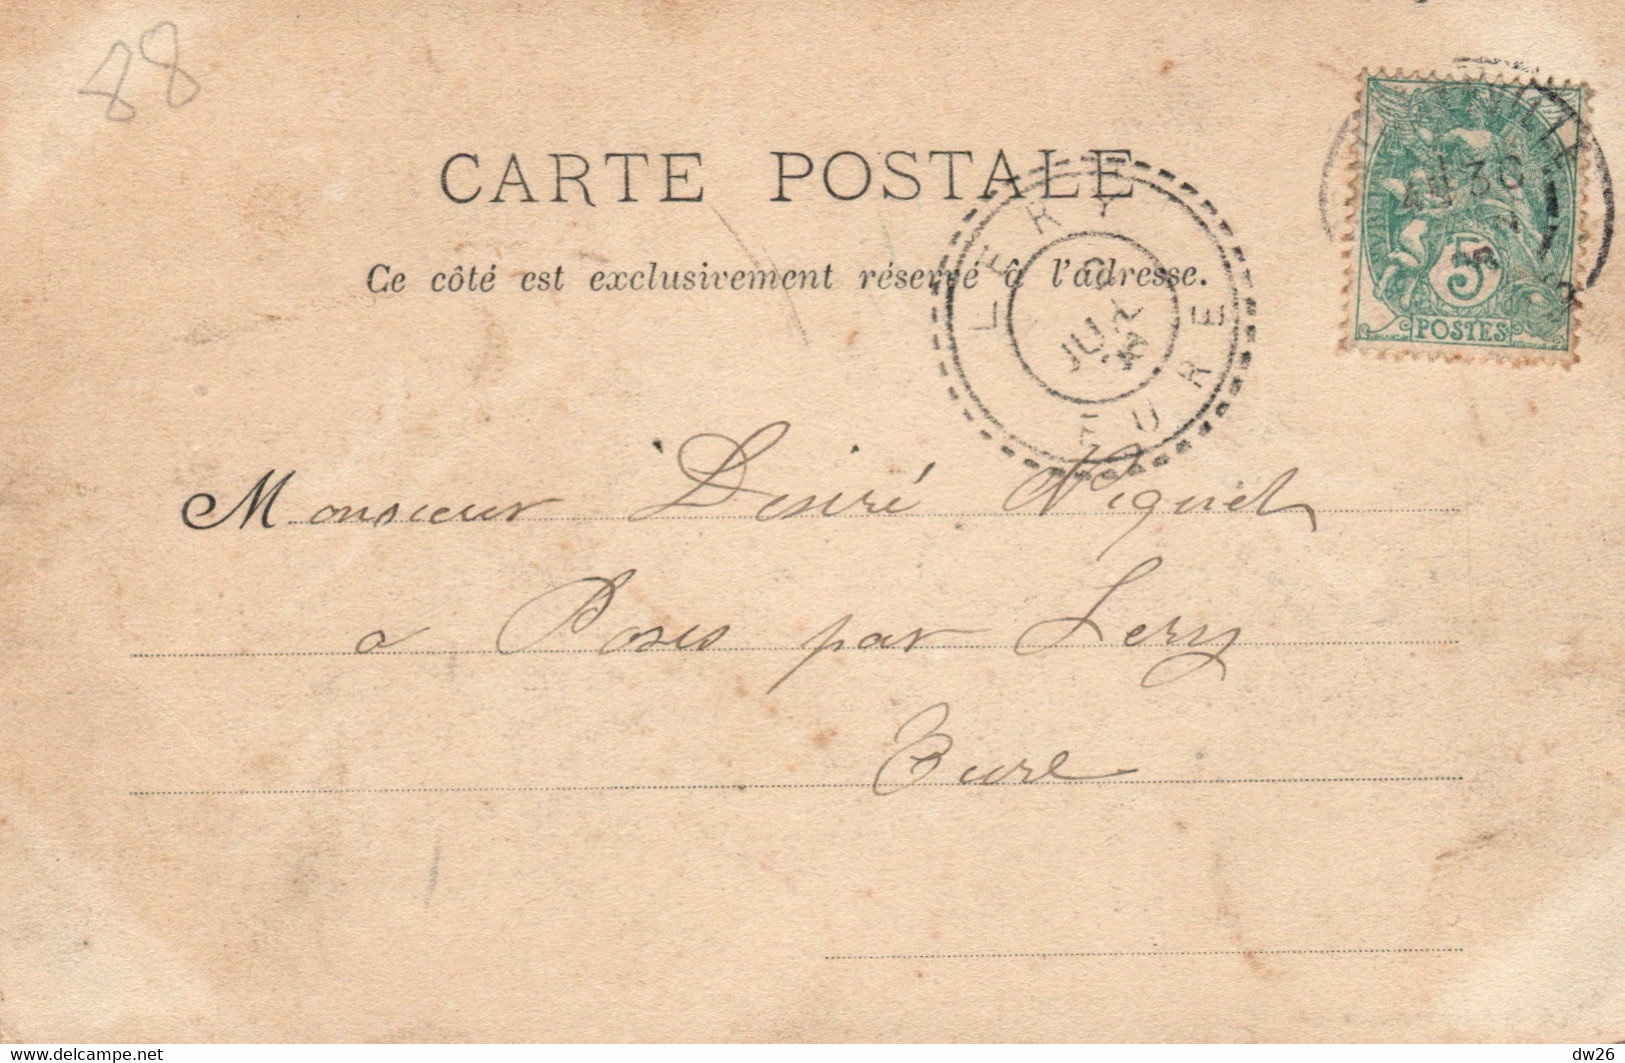 88
CARTE POSTALE
Ce côté est exclusivement réservé à l'adresse.
LERY
JUIL
EURE
30
5
POSTES
Monsieur Désiré Niquet
a Poses par Lery
Eure
delcampe.net
dw26